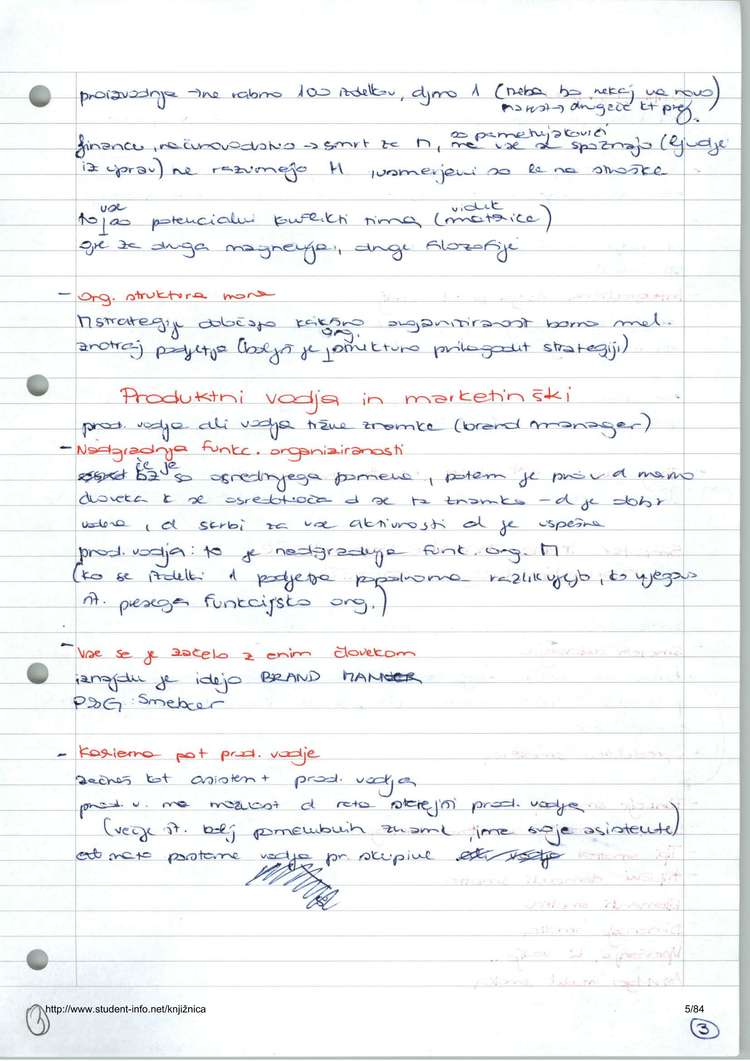 proizvodnja → ne rabmo 100 izdelkov, djmo 1 (treba bo nekaj na novo)
finance, računovodstvo → smrt za M, so pametnjakovići ne vse d spoznajo (ljudje
iz uprav) ne razumejo M, usmerjeni so le na stroške
to so vse potencialni konflikti tima (matrica) vidik
gre za druga mnenja, druge filozofije
- org. struktura mora
M strategiji določajo kakšno organiziranost bomo mel.
znotraj podjetja (boljš je org. strukturo prilagodit strategiji)
Produktni vodja in marketinški
prod. vodja ali vodja tržne znamke (brand manager)
- Nadgradnja funkc. organiziranosti
če je BZ so osrednjega pomena, potem je prav d mamo
človeka k se osredotoča d se ta znamka - d je dobr
vodena, d skrbi za vse aktivnosti d je uspešna
prod. vodja: to je nadgradnja funk. org. M
(ko se izdelki 1 podjetja popolnoma razlikujejo, ko njegovo
št. presega funkcijsko org.)
- Vse se je začelo z enim človekom
iznajdu je idejo BRAND
P&G:
- Karierna pot prod. vodje
začneš kot asistent prod. vodja
prod. v. ma možnost d rata starejši prod. vodja
(večje št. bolj pomembnih znamk, ima svoje asistente)
rata postane vodja pr. skupine
http://www.student-info.net/knjižnica
5/84
3
3